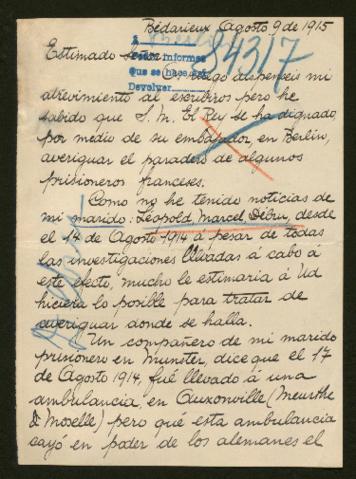 Bédarieux Agosto 9 de 1915
Estimado
84317
Pedir informes
que se hace así
Devolver
Os ruego dispenseis mi
atrevimiento al escribiros pero he
sabido que S. M. El Rey se ha dignado,
por medio de su embajador, en Berlin,
averiguar el paradero de algunos
prisioneros franceses.
Como no he tenido noticias de
mi marido: Leopold Marcel Debru, desde
el 14 de Agosto 1914 á pesar de todas
las investigaciones llevadas á cabo á
este efecto, mucho le estimaria á Ud
hiciera lo posible para tratar de
averiguar donde se halla.
Un compañero de mi marido
prisionero en Munster, dice que el 17
de Agosto 1914, fué llevado á una
ambulancia, en Auxonville (Meurthe
& Moselle) pero qué esta ambulancia
cayó en poder de los alemanes el